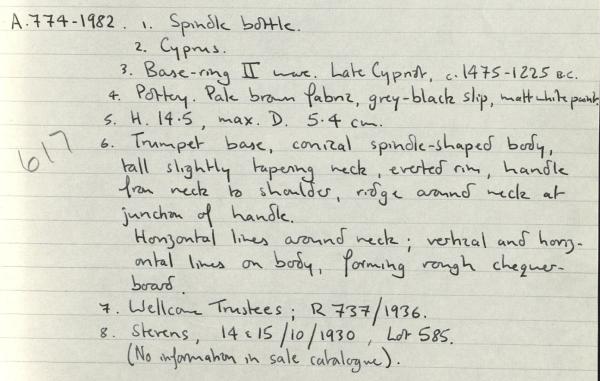 A.774-1982. 1. Spindle bottle.
2. Cyprus.
3. Base-ring II ware. Late Cypriot, c. 1475-1225 B.C.
4. Pottery. Pale brown fabric, grey-black slip, matt white paint.
5. H. 14.5, max. D. 5.4 cm.
617
6. Trumpet base, conical spindle-shaped body,
tall slightly tapering neck, everted rim, handle
from neck to shoulder, ridge around neck at
junction of handle.
Horizontal lines around neck; vertical and horiz-
ontal lines on body, forming rough chequer-
board.
7. Wellcome Trustees; R 737/1936.
8. Stevens, 14 & 15/10/1930, Lot 585.
(No information in sale catalogue).